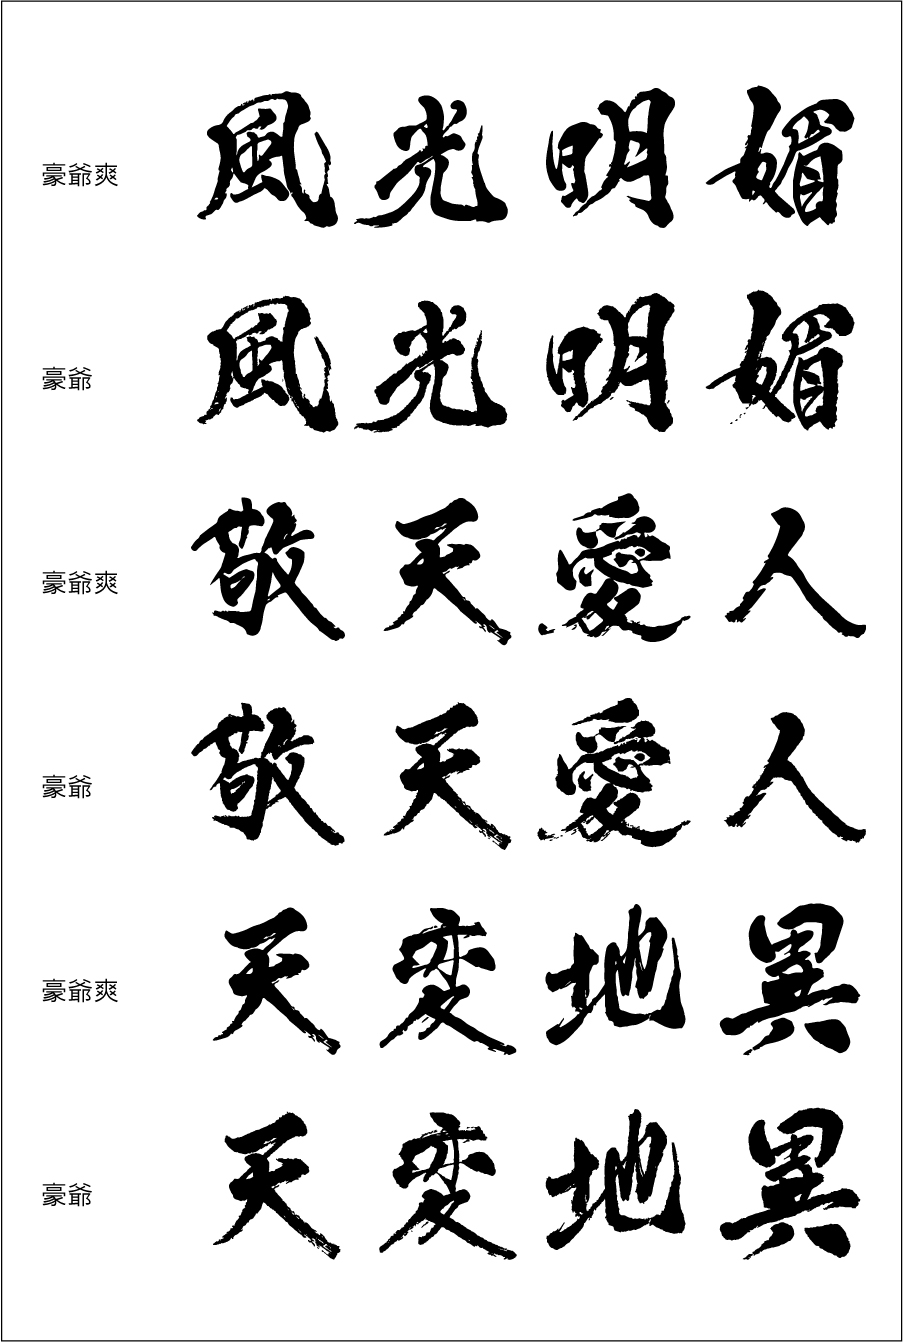 豪爺爽 風光明媚
豪爺 風光明媚
豪爺爽 敬天愛人
豪爺 敬天愛人
豪爺爽 天変地異
豪爺 天変地異